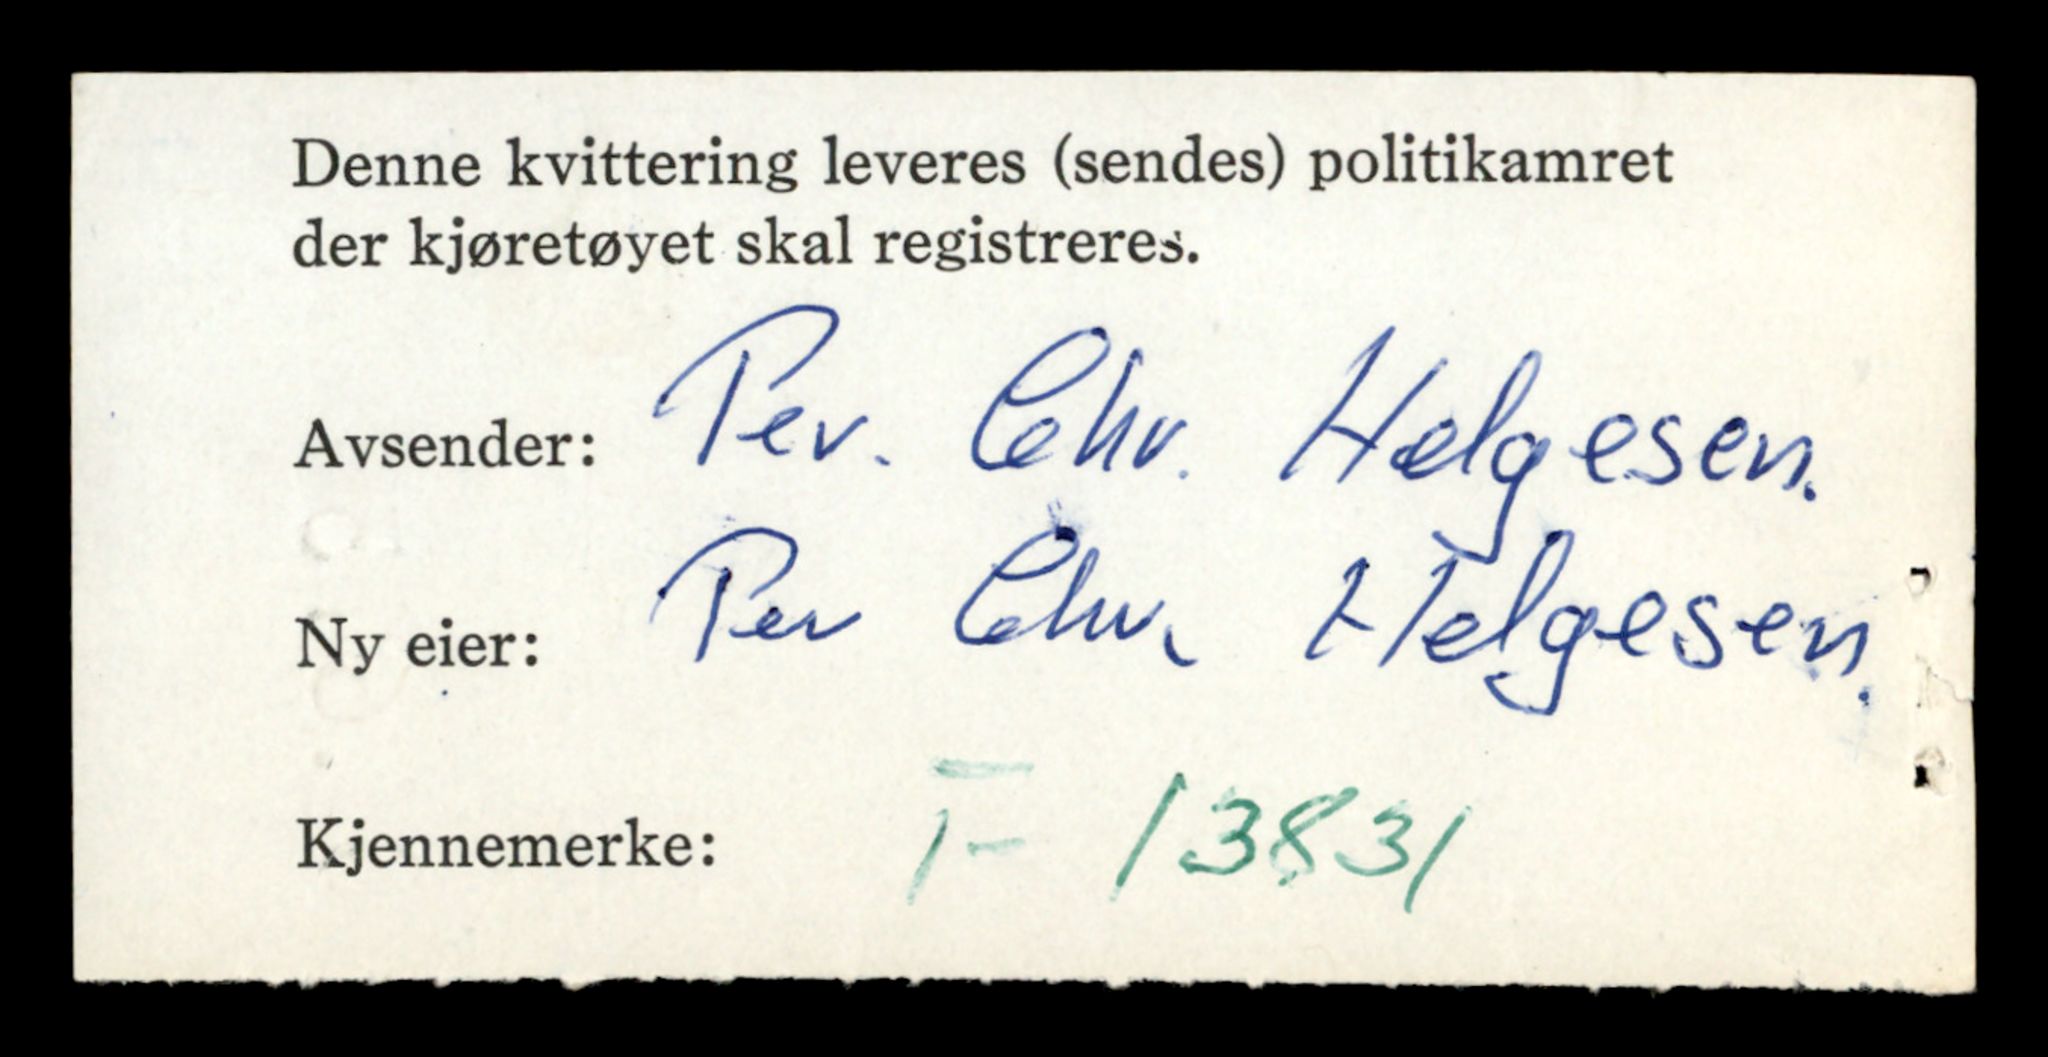 Denne kvittering leveres (sendes) politikamret
der kjøretøyet skal registreres.
Avsender: Per. Chr. Helgesen.
Ny eier: Per Chr. Helgesen.
Kjennemerke: T- 13831